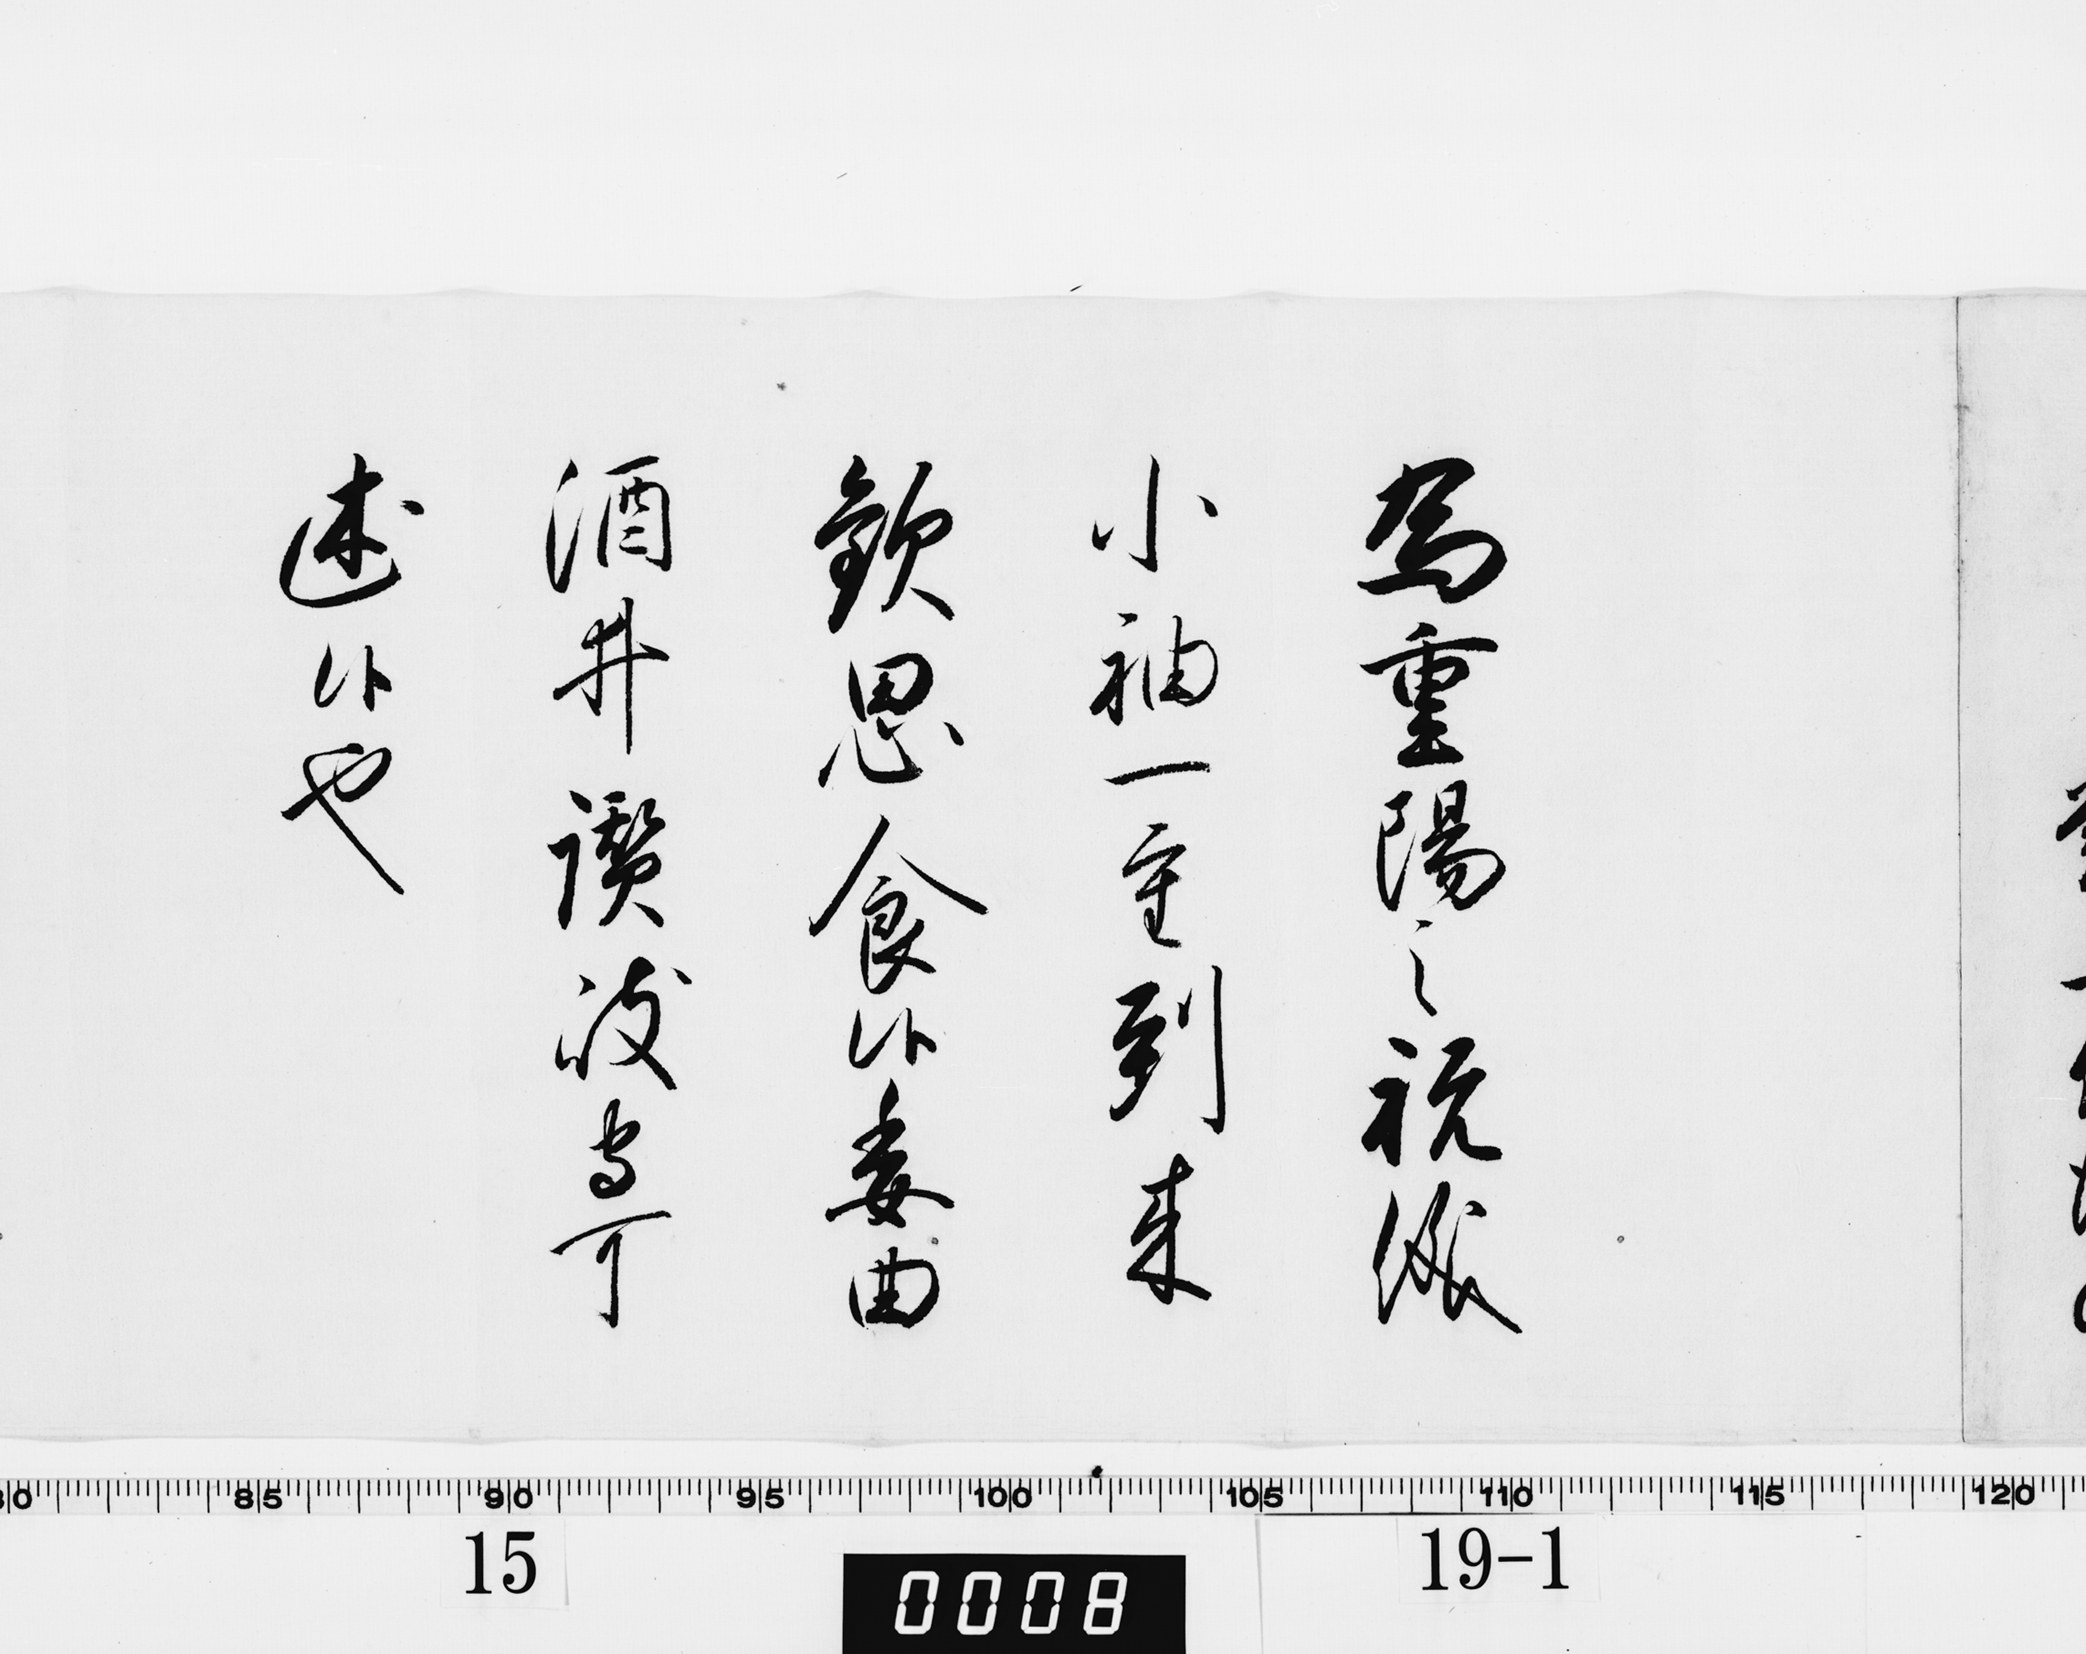 為重陽之祝儀
小袖一重到来
歓思食候委曲
酒井讃岐守可
述候也
80 85 90 95 100 105 110 115 120
15
0008
19-1